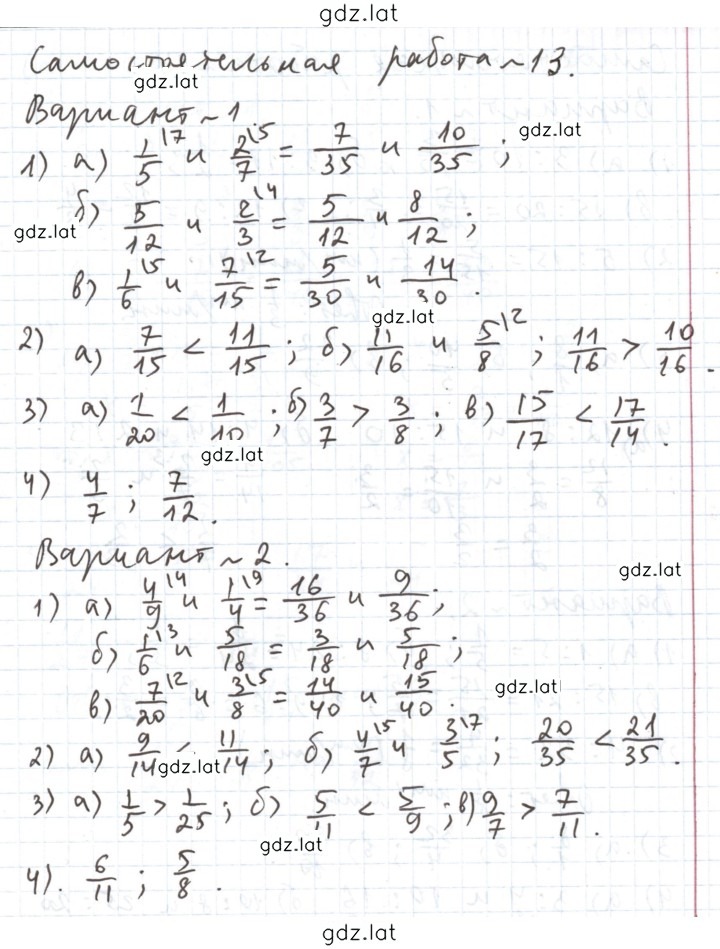 gdz.lat
Самостоятельная работа ~ 13.
gdz.lat
Вариант ~ 1
1) а) 1/5 \7 и 2/7 \5 = 7/35 и 10/35 ; gdz.lat
б) 5/12 и 2/3 \4 = 5/12 и 8/12 ;
gdz.lat
в) 1/6 \5 и 7/15 \2 = 5/30 и 14/30 .
gdz.lat
2) а) 7/15 < 11/15 ; б) 11/16 и 5/8 \2 ; 11/16 > 10/16 .
3) а) 1/20 < 1/10 ; б) 3/7 > 3/8 ; в) 15/17 < 17/14 .
gdz.lat
4) 4/7 ; 7/12 .
Вариант ~ 2.
gdz.lat
1) а) 4/9 \4 и 1/4 \9 = 16/36 и 9/36 ;
б) 1/6 \3 и 5/18 = 3/18 и 5/18 ;
в) 7/20 \2 и 3/8 \5 = 14/40 и 15/40 . gdz.lat
2) а) 9/14 < 11/14 ; б) 4/7 \5 и 3/5 \7 ; 20/35 < 21/35 .
gdz.lat
3) а) 1/5 > 1/25 ; б) 5/11 < 5/9 ; в) 9/7 > 7/11 .
gdz.lat
4). 6/11 ; 5/8 .
gdz.lat